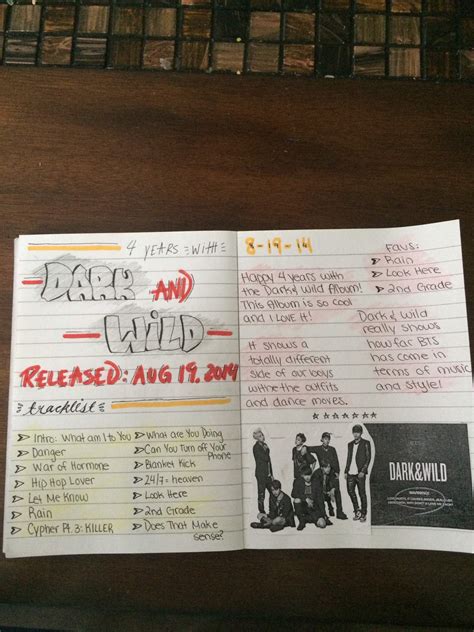 4 YEARS WITH
DARK AND
WILD
RELEASED: AUG 19, 2014
tracklist
Intro: What am I to You
Danger
War of Hormone
Hip Hop Lover
Let Me Know
Rain
Cypher Pt. 3: KILLER
What are You Doing
Can You Turn off Your
Phone
Blanket Kick
24/7= heaven
Look Here
2nd Grade
Does That Make
sense?
8-19-14
Happy 4 years with
the Dark & Wild Album!
This Album is so cool
and I LOVE IT!
It shows a
totally different
side of our boys
with the outfits
and dance moves.
Favs:
Rain
Look Here
2nd Grade
Dark & Wild
really shows
how far BTS
has come in
terms of music
and style!
DARK&WILD